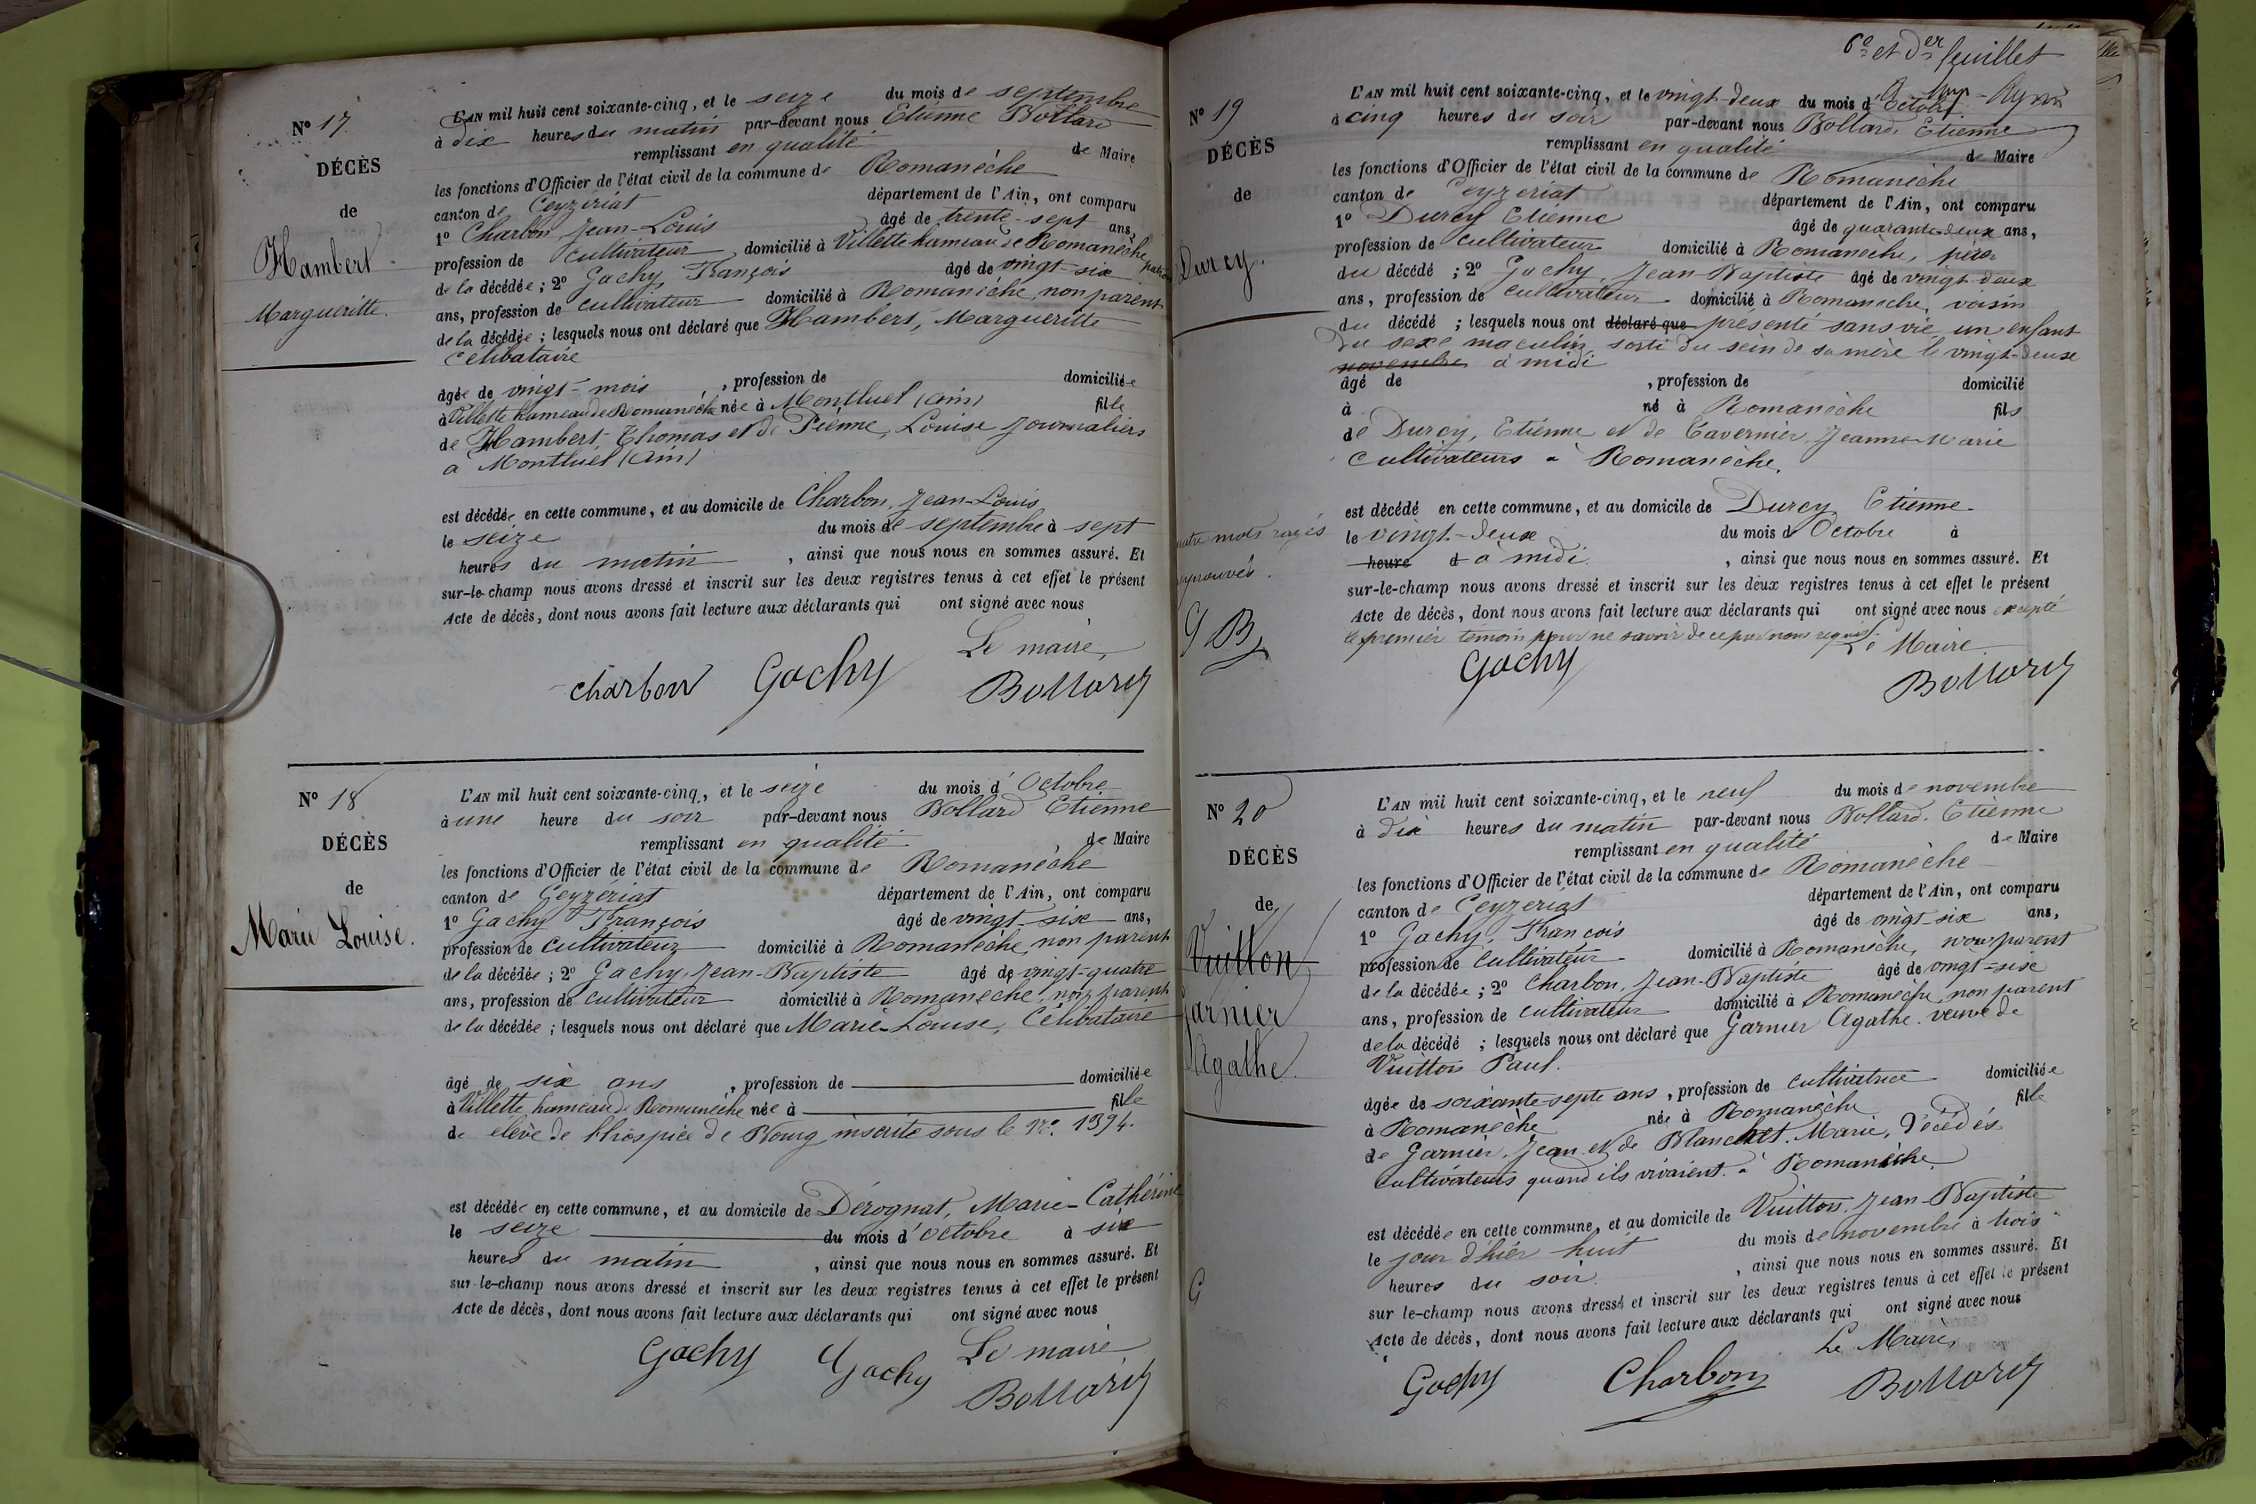 Nº 17
DÉCÈS
de
Hambert
Margueritte.
L'AN mil huit cent soixante-cinq, et le seize du mois de septembre
à dix heures du matin par-devant nous Etienne Bollard
remplissant en qualité de Maire
les fonctions d'Officier de l'état civil de la commune de Romanèche
canton de Ceyzériat département de l'Ain, ont comparu
1º Charbon, Jean-Louis âgé de trente-sept ans,
profession de cultivateur domicilié à Villette hameau de Romanèche,
de la décédée ; 2º Gachy, François âgé de vingt-six
ans, profession de cultivateur domicilié à Romanèche, non parent
de la décédée ; lesquels nous ont déclaré que Hambert, Margueritte
Célibataire
âgée de vingt-mois , profession de domiciliée
à Villette hameau de Romanèche née à Montluel (Ain) fille
de Hambert, Thomas et de Piénne, Louise Journaliers
à Montluel (Ain)
est décédée en cette commune, et au domicile de Charbon, Jean-Louis
le seize du mois de septembre à sept
heures du matin , ainsi que nous nous en sommes assuré. Et
sur-le-champ nous avons dressé et inscrit sur les deux registres tenus à cet effet le présent
Acte de décès, dont nous avons fait lecture aux déclarants qui ont signé avec nous
Le maire,
charbon Gachy Bollard
Nº 18
DÉCÈS
de
Marie Louise.
L'AN mil huit cent soixante-cinq, et le seize du mois d'Octobre
à une heure du soir par-devant nous Bollard Etienne
remplissant en qualité de Maire
les fonctions d'Officier de l'état civil de la commune de Romanèche
canton de Ceyzériat département de l'Ain, ont comparu
1º Gachy François âgé de vingt-six ans,
profession de cultivateur domicilié à Romanèche, non parent
de la décédée ; 2º Gachy, Jean-Baptiste âgé de vingt-quatre
ans, profession de cultivateur domicilié à Romanèche, non parent
de la décédée ; lesquels nous ont déclaré que Marie-Louise, Célibataire
âgé de six ans , profession de domiciliée
à Villette hameau de Romanèche née à fille
de elève de l'hospice de Bourg inscrite sous le Nº 1394.
est décédée en cette commune, et au domicile de Dérognat, Marie-Cathérine
le seize du mois d'octobre à six
heures du matin , ainsi que nous nous en sommes assuré. Et
sur-le-champ nous avons dressé et inscrit sur les deux registres tenus à cet effet le présent
Acte de décès, dont nous avons fait lecture aux déclarants qui ont signé avec nous
Le maire
Gachy Gachy Bollard
6e et der feuillet
Nº 19
DÉCÈS
de
Durcy.
L'AN mil huit cent soixante-cinq, et le vingt-deux du mois d'Octobre
à cinq heures du soir par-devant nous Bollard, Etienne
remplissant en qualité de Maire
les fonctions d'Officier de l'état civil de la commune de Romanèche
canton de Ceyzeriat département de l'Ain, ont comparu
1º Durcy Etienne âgé de quarante-deux ans,
profession de cultivateur domicilié à Romanèche, père
du décédé ; 2º Gachy Jean-Baptiste âgé de vingt-deux
ans, profession de cultivateur domicilié à Romanèche, voisin
du décédé ; lesquels nous ont déclaré que présenté sans vie un enfant
du sexe maculin, sorti du sein de sa mère le vingt-deux
novembre à midi
âgé de , profession de domicilié
à né à Romanèche fils
de Durcy, Etienne et de Tavernier, Jeanne-Marie
cultivateurs à Romanèche.
est décédé en cette commune, et au domicile de Durcy, Etienne
le vingt-deux du mois d'Octobre à
heure d à midi , ainsi que nous nous en sommes assuré. Et
sur-le-champ nous avons dressé et inscrit sur les deux registres tenus à cet effet le présent
Acte de décès, dont nous avons fait lecture aux déclarants qui ont signé avec nous excepté
le premier témoin pour ne savoir de ce par nous requis. Le Maire
Gachy Bollard
quatre mots rayés
approuvés.
G B
Nº 20
DÉCÈS
de
Vuitton
Garnier
Agathe.
G
L'AN mil huit cent soixante-cinq, et le neuf du mois de novembre
à dix heures du matin par-devant nous Bollard, Etienne
remplissant en qualité de Maire
les fonctions d'Officier de l'état civil de la commune de Romanèche
canton de Ceyzeriat département de l'Ain, ont comparu
1º Gachy, François âgé de vingt-six ans,
profession de cultivateur domicilié à Romanèche, non parent
de la décédée ; 2º Charbon, Jean-Baptiste âgé de vingt-six
ans, profession de cultivateur domicilié à Romanèche, non parent
de la décédé ; lesquels nous ont déclaré que Garnier Agathe, veuve de
Vuitton Paul.
âgée de soixante-septe ans, profession de cultivatrice domiciliée
à Romanèche née à Romanèche fille
de Garnier, Jean et de Blanchet, Marie, Décédés
Cultivateurs quand ils vivaient à Romanèche
est décédée en cette commune, et au domicile de Vuitton, Jean-Baptiste
le jour d'hier huit du mois de novembre à trois
heures du soir , ainsi que nous nous en sommes assuré. Et
sur le-champ nous avons dressé et inscrit sur les deux registres tenus à cet effet le présent
Acte de décès, dont nous avons fait lecture aux déclarants qui ont signé avec nous
Le Maire,
Gachy Charbon Bollard